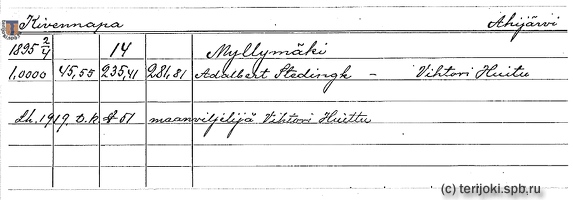 Kivennapa Ahijärvi
1895 2/4 14 Myllymäki
1,0000 45,55 235,41 281,81 Adalbert Stedingk – Vihtori Huitu
Lh. 1919. D.k. § 51 maanviljelijä Vihtori Huittu
(c) terijoki.spb.ru